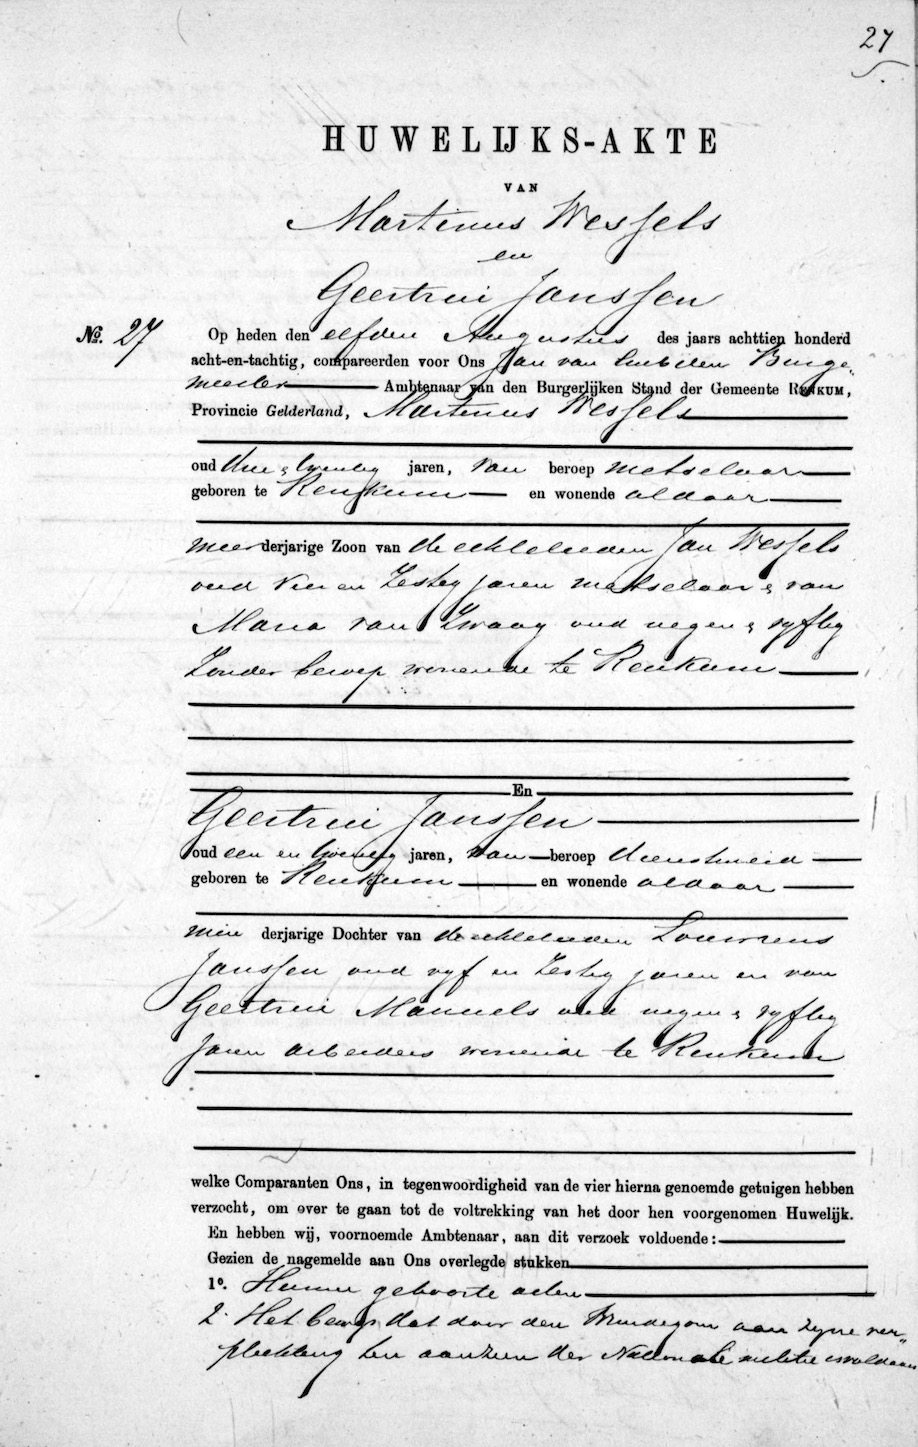 27
HUWELIJKS-AKTE
VAN
Martinus Wessels
en
Geertrui Janssen
No. 27
Op heden den elfden Augustus des jaars achttien honderd
acht-en-tachtig, compareerden voor Ons Jan van Burge„
meester Ambtenaar van den Burgerlijken Stand der Gemeente RENKUM,
Provincie Gelderland, Martinus Wessels
oud drie & twintig jaren, van beroep metselaar
geboren te Renkum en wonende aldaar
meerderjarige Zoon van de echtelieden Jan Wessels
oud vier en Zestig jaren metselaar & van
Maria van Zwaag oud negen & vyftig
Zonder beroep wonende te Renkum
En
Geertrui Janssen
oud een en twintig jaren, van beroep dienstmeid
geboren te Renkum en wonende aldaar
min derjarige Dochter van de echtelieden Louwrens
Janssen oud vyf en Zestig jaren en van
Geertrui Manuels oud negen & vyftig
jaren arbeiders wonende te Renkum
welke Comparanten Ons, in tegenwoordigheid van de vier hierna genoemde getuigen hebben
verzocht, om over te gaan tot de voltrekking van het door hen voorgenomen Huwelijk.
En hebben wij, voornoemde Ambtenaar, aan dit verzoek voldoende:
Gezien de nagemelde aan Ons overlegde stukken
1o. Hunne geboorte acten
2. Het bewys dat door den Bruidegom aan zyne ver„
plichting ten aanzien der Nationale militie is voldaan